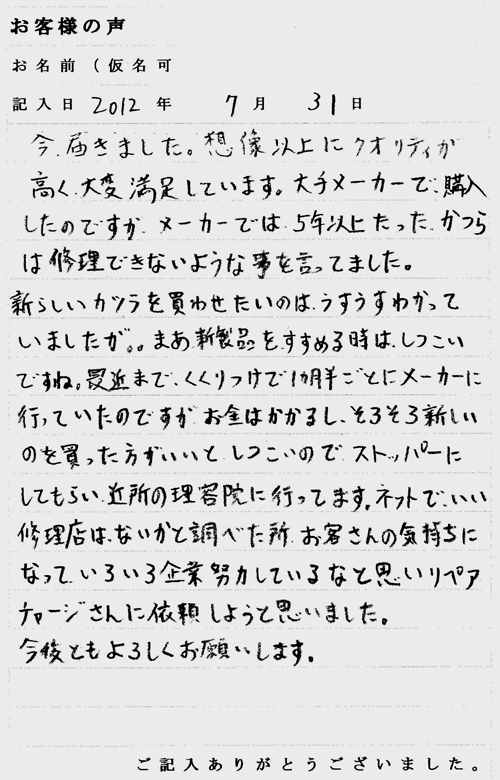 お客様の声
お名前（仮名可
記入日 2012 年 7 月 31 日
今、届きました。想像以上にクオリティが
高く、大変満足しています。大手メーカーで、購入
したのですが、メーカーでは、5年以上たった、かつら
は修理できないような事を言ってました。
新らしいカツラを買わせたいのは、うすうすわかって
いましたが。。まあ新製品をすすめる時は、しつこい
ですね。最近まで、くくりつけで1カ月半ごとにメーカーに
行っていたのですが、お金はかかるし、そろそろ新しい
のを買った方がいいと、しつこいので、ストッパーに
してもらい、近所の理容院に行ってます。ネットで、いい
修理店は、ないかと調べた所、お客さんの気持ちに
なって、いろいろ企業努力しているなと思いリペア
チャージさんに依頼しようと思いました。
今後ともよろしくお願いします。
ご記入ありがとうございました。